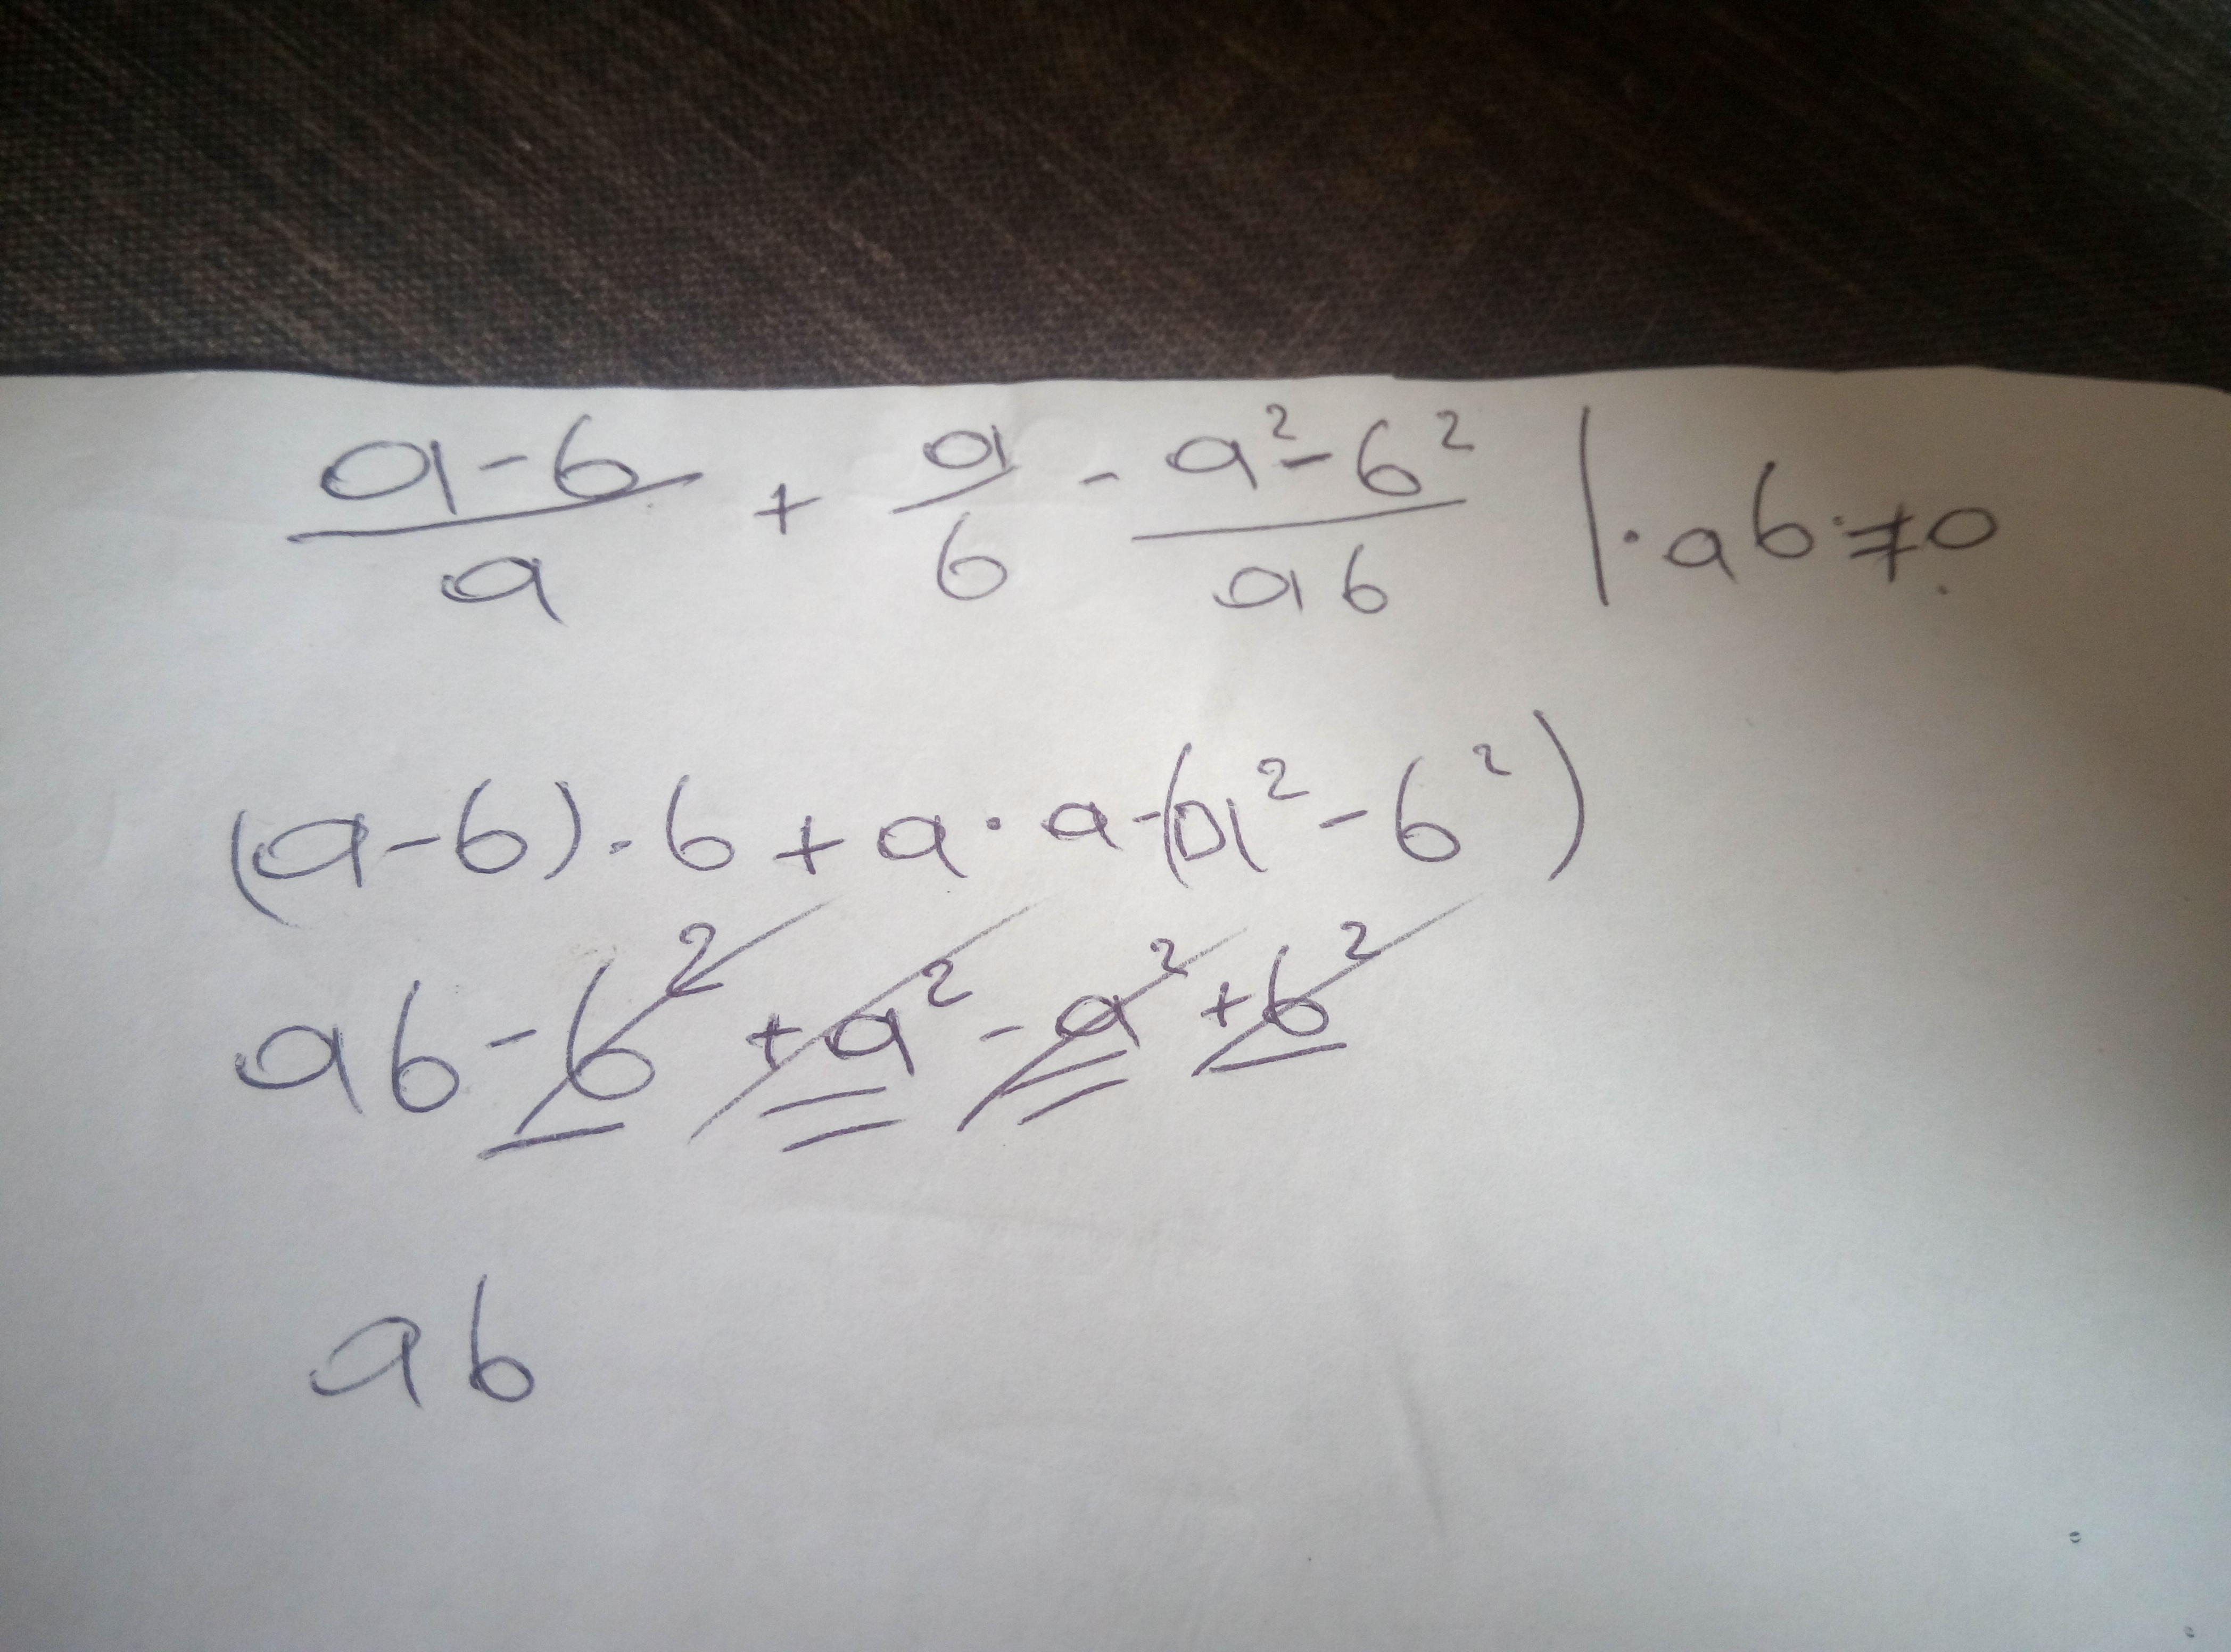 (a-b)/a + a/b - (a²-b²)/(ab) | · ab ≠ 0
(a-b)·b+a·a-(a²-b²)
ab-b²+a²-a²+b²
ab